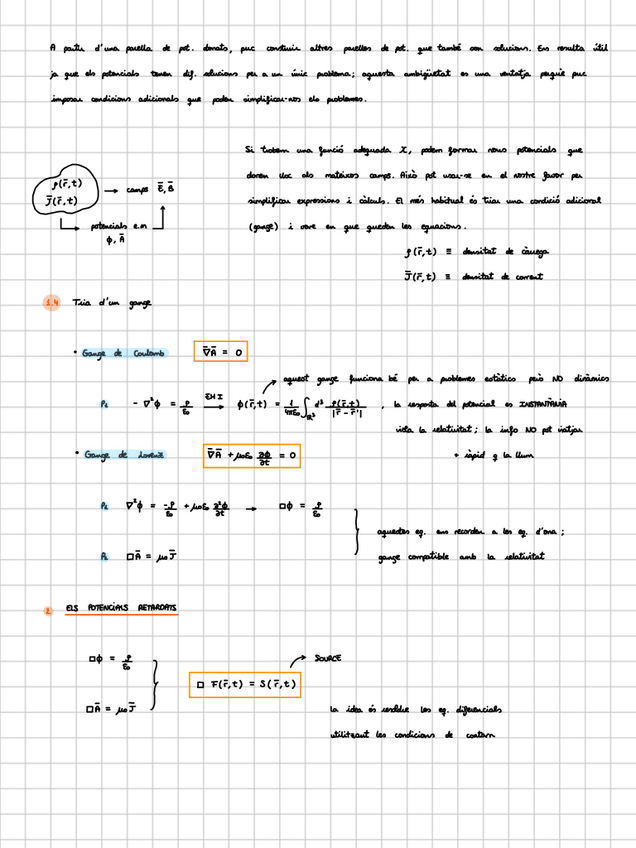 A partir d'una parella de pot. donats, puc construir altres parelles de pot. que també son solucions. Ens resulta útil
ja que els potencials tenen dif. solucions per a un únic problema; aquesta ambigüetat es una ventatja perquè puc
imposar condicions adicionals que poden simplificar-nos els problemes.
Si trobem una funció adequada χ, podem formar nous potencials que
donen lloc als mateixos camps. Això pot usar-se en el nostre favor per
simplificar expressions i càlculs. El més habitual és triar una condició adicional
(gauge) i vore en que queden les equacions.
ρ(r̄,t)
J̄(r̄,t)
→ camps Ē, B̄
potencials e.m
ϕ, Ā
ρ(r̄,t) ≡ densitat de càrrega
J̄(r̄,t) ≡ densitat de corrent
1.4 Tria d'un gauge
• Gauge de Coulomb ∇̄Ā = 0
aquest gauge funciona bé per a problemes estàtics però NO dinàmics
P₁ - ∇²ϕ = ρ/ε₀ → ϕ(r̄,t) = 1/4πε₀ ∫ℝ³ d³ ρ(r̄,t)/|r̄ - r̄'| , la resposta del potencial es INSTANTÀNIA
viola la relativitat; la info NO pot viatjar
+ ràpid q la llum
• Gauge de Lorenz ∇̄Ā + μ₀ε₀ ∂ϕ/∂t = 0
P₁ ∇²ϕ = -ρ/ε₀ + μ₀ε₀ ∂²ϕ/∂t → □ϕ = ρ/ε₀
aquestes eq. ens recorden a les eq. d'ona;
P₂ □Ā = μ₀J̄
gauge compatible amb la relativitat
2. ELS POTENCIALS RETARDATS
□ϕ = ρ/ε₀
→ SOURCE
□ F(r̄,t) = S(r̄,t)
□Ā = μ₀J̄
la idea és resoldre les eq. diferencials
utilitzant les condicions de contorn